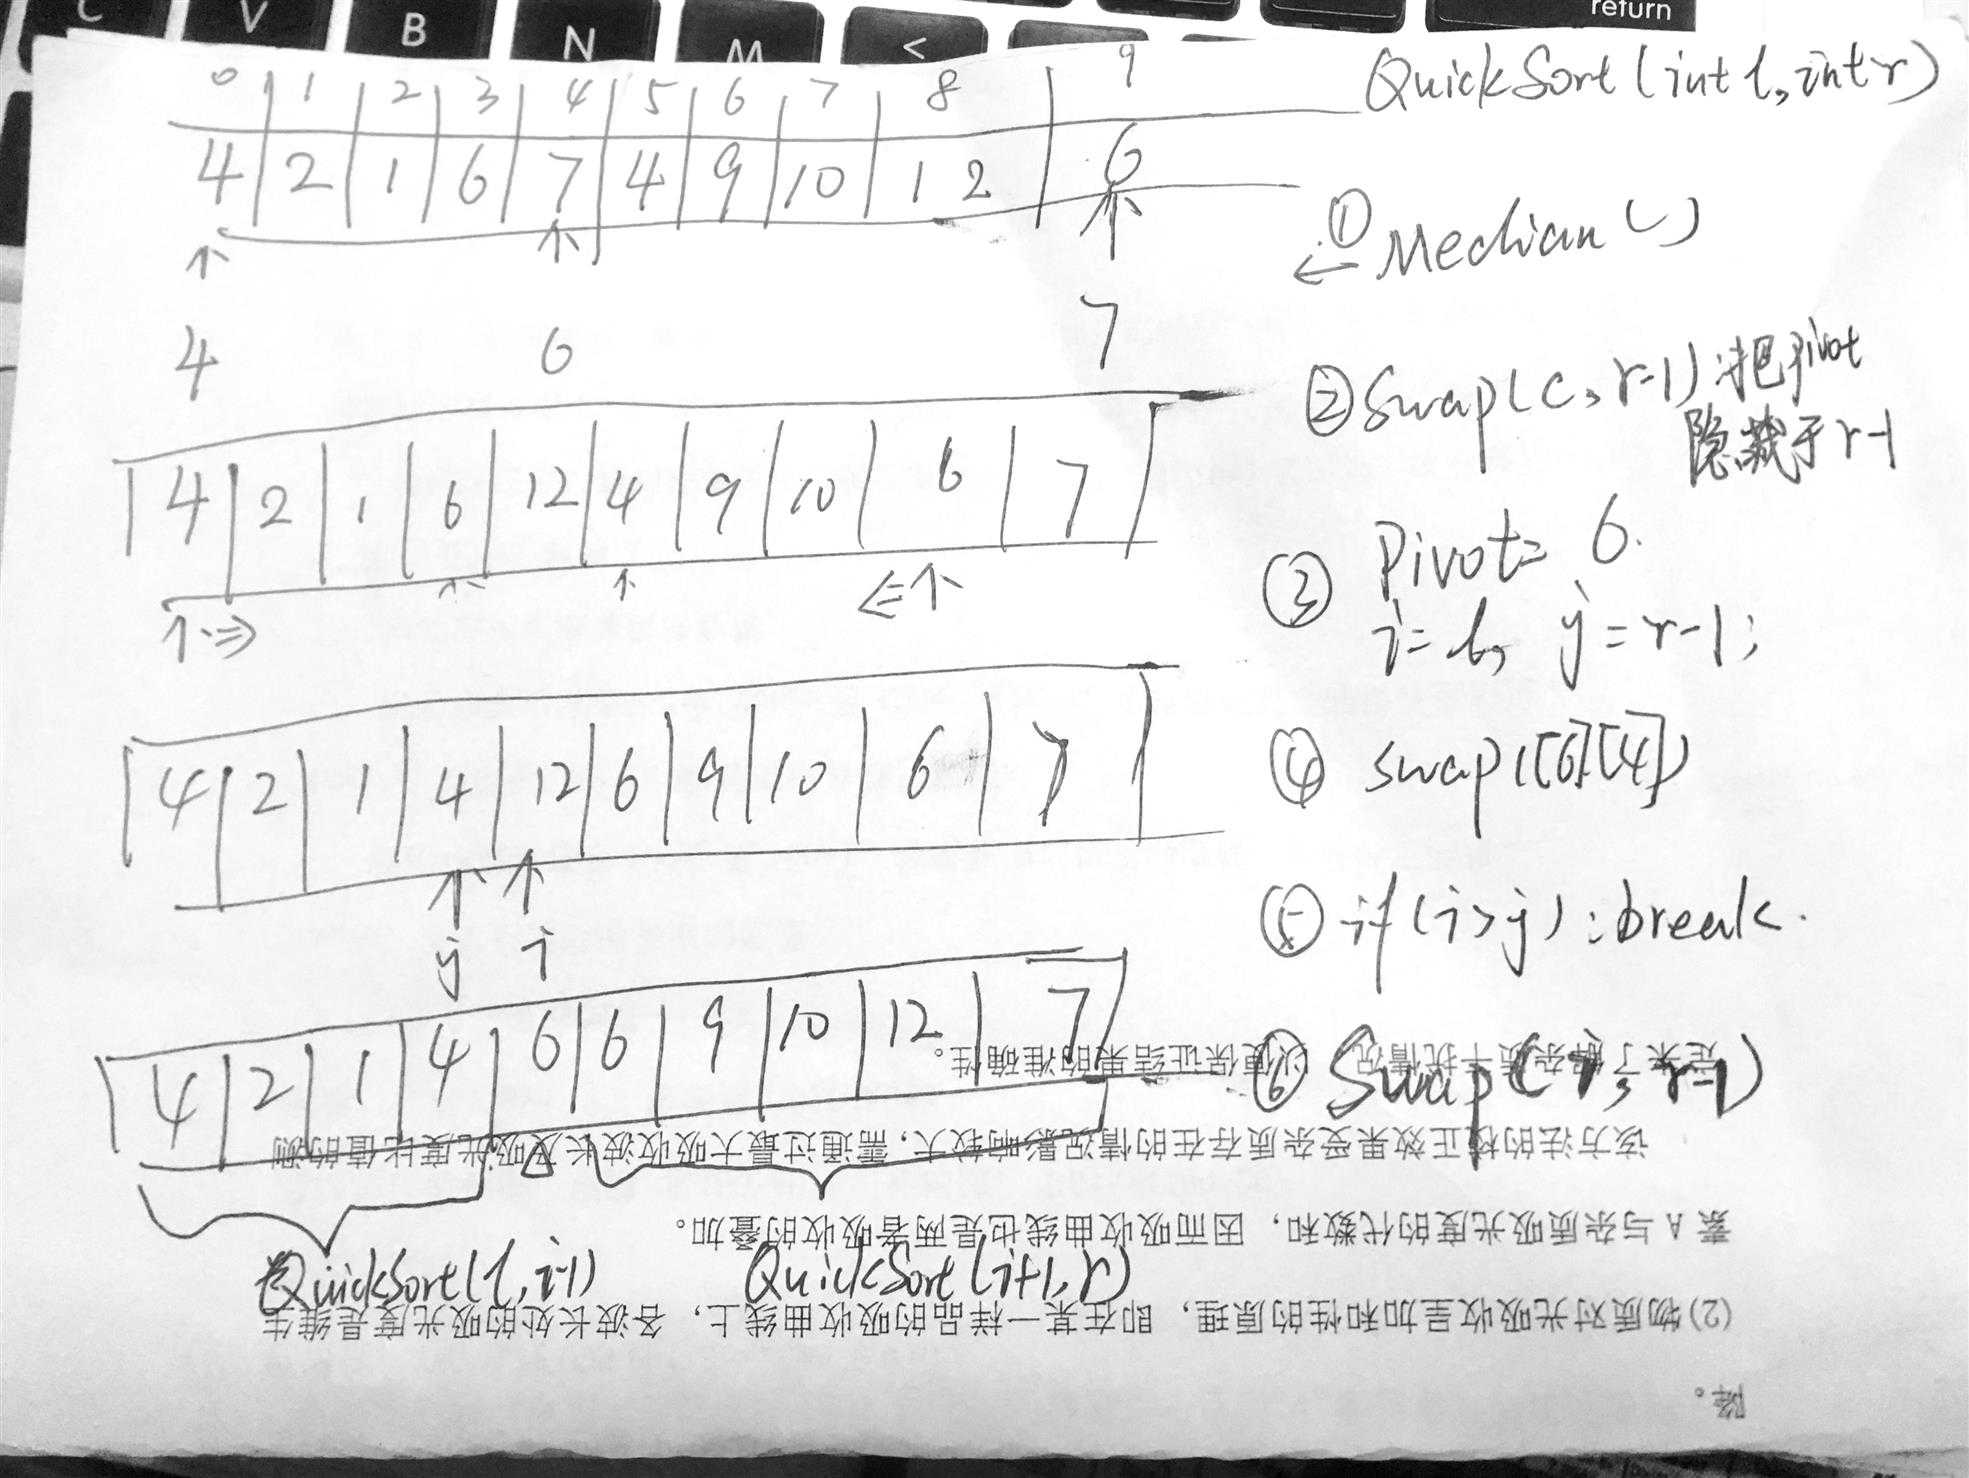 C V B N M < return
0 1 2 3 4 5 6 7 8 9
QuickSort(int l, int r)
4 2 1 6 7 4 9 10 12 6
① Median()
4 6 7
② Swap(c, r-1):把pivot
隐藏于r-1
4 2 1 6 12 4 9 10 6 7
③ Pivot= 6.
i= l, j = r-1;
4 2 1 4 12 6 9 10 6 7
④ swap([6][4])
j i
⑤ if(i>j):break.
4 2 1 4 6 6 9 10 12 7
⑥ Swap(i, r-1)
QuickSort(l, i-1) QuickSort(i+1, r)
降。
(2)物质对光吸收呈加和性的原理，即在某一样品的吸收曲线上，各波长处的吸光度是维生
素 A 与杂质吸光度的代数和，因而吸收曲线也是两者吸收的叠加。
该方法的校正效果受杂质存在的情况影响较大，需通过最大吸收波长及吸光度比值的测
定来了解杂质干扰情况，以便保证结果的准确性。